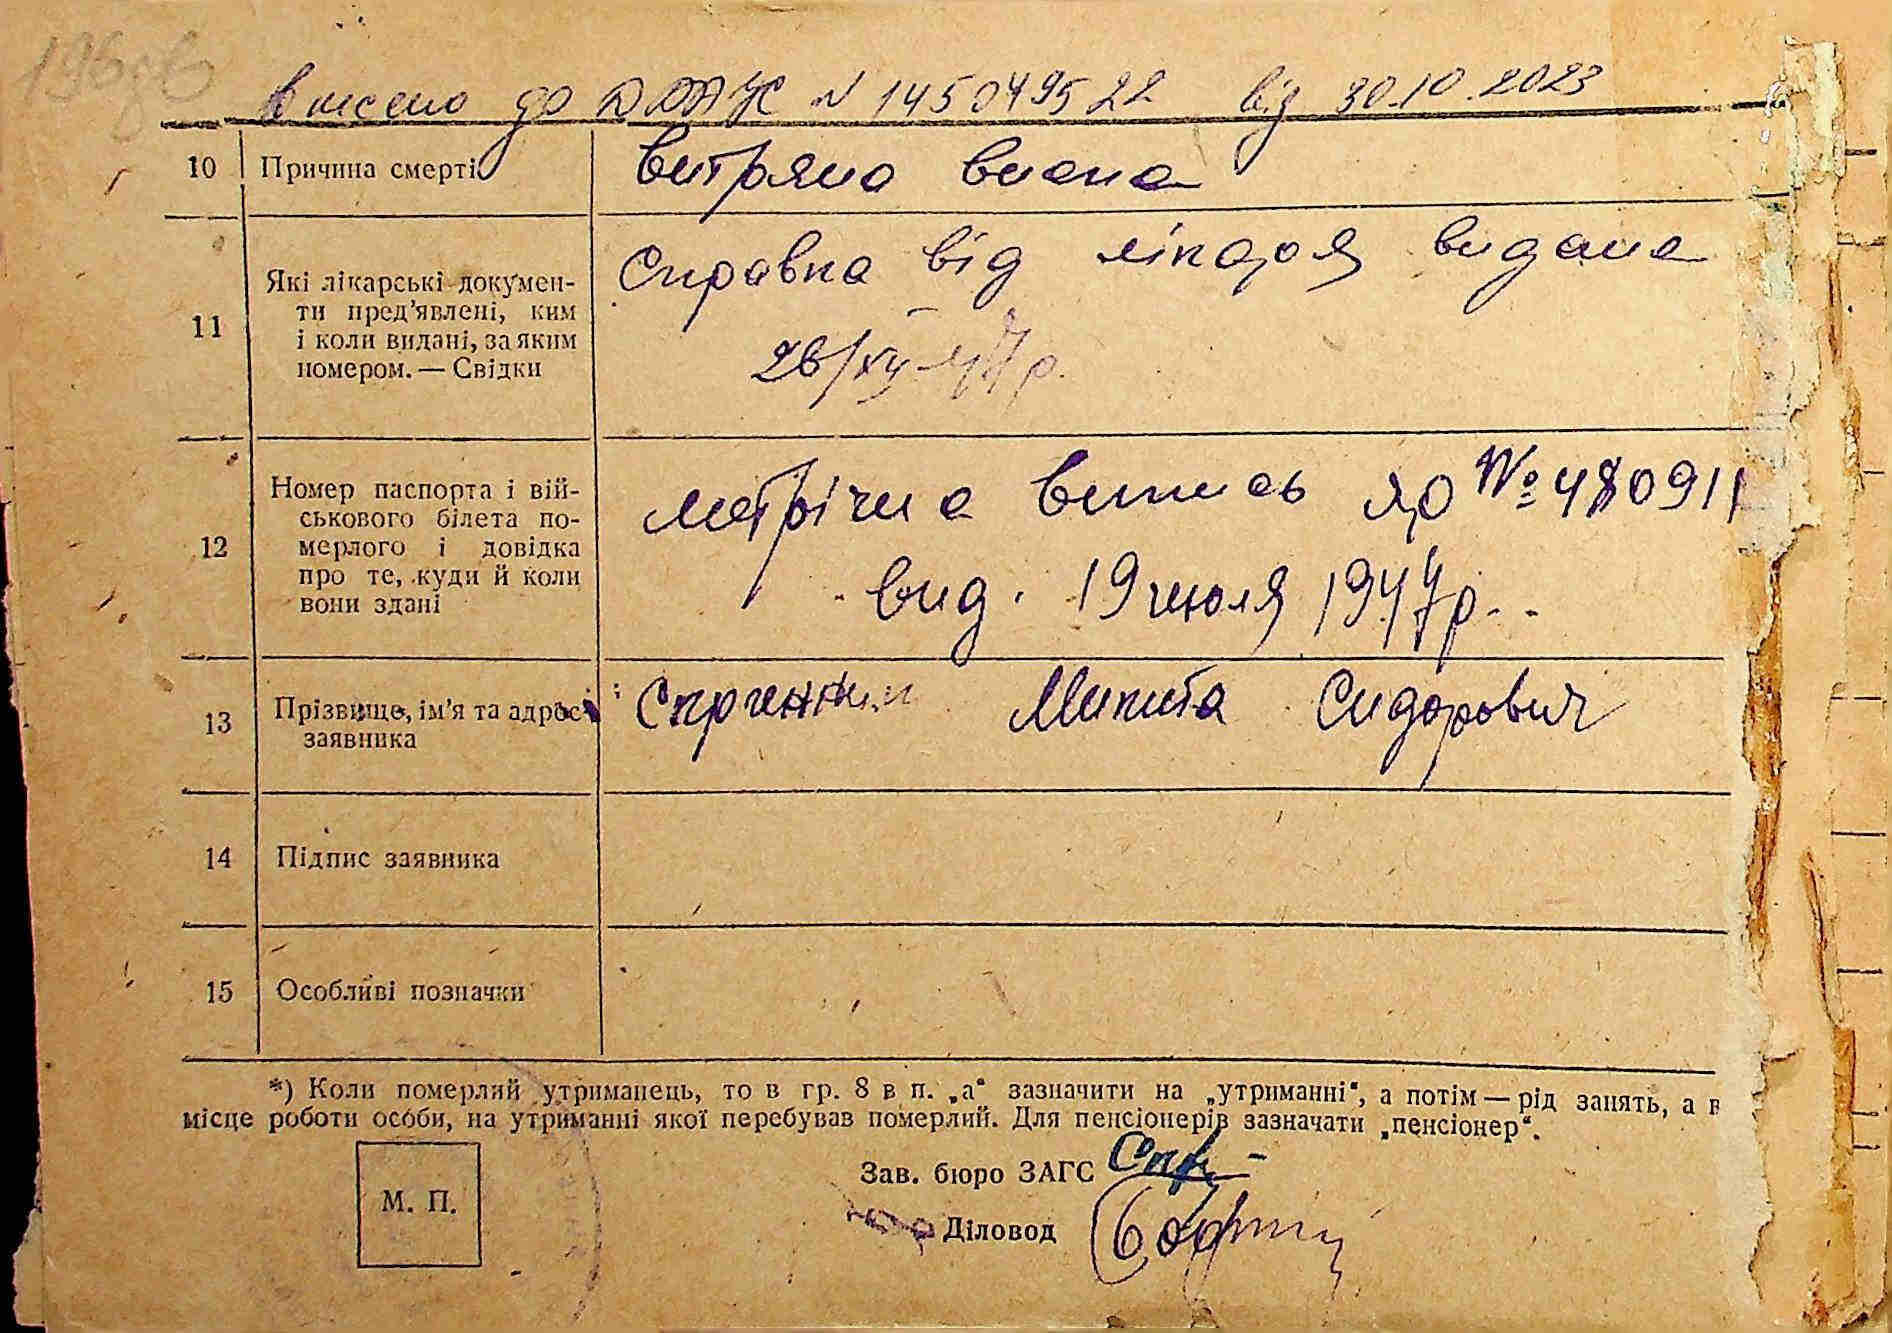 внесено до ДРАЦС N 145049522 від 30.10.2023
10 Причина смерті Вітряна віспа
11 Які лікарські документи пред'явлені, ким і коли видані, за яким номером. — Свідки
Справка від лікаря видана
26/XII 47 р.
12 Номер паспорта і військового білета померлого і довідка про те, куди й коли вони здані
метрична випись ЯО №
вид. 19 июля 1947 р.
13 Прізвище, ім'я та адрес заявника
Микита Сидорович
14 Підпис заявника
15 Особливі позначки
*) Коли померлий утриманець, то в гр. 8 в п. „а“ зазначити на „утриманні“, а потім — рід занять, а в
місце роботи особи, на утриманні якої перебував померлий. Для пенсіонерів зазначати „пенсіонер“.
Зав. бюро ЗАГС
М. П.
Діловод